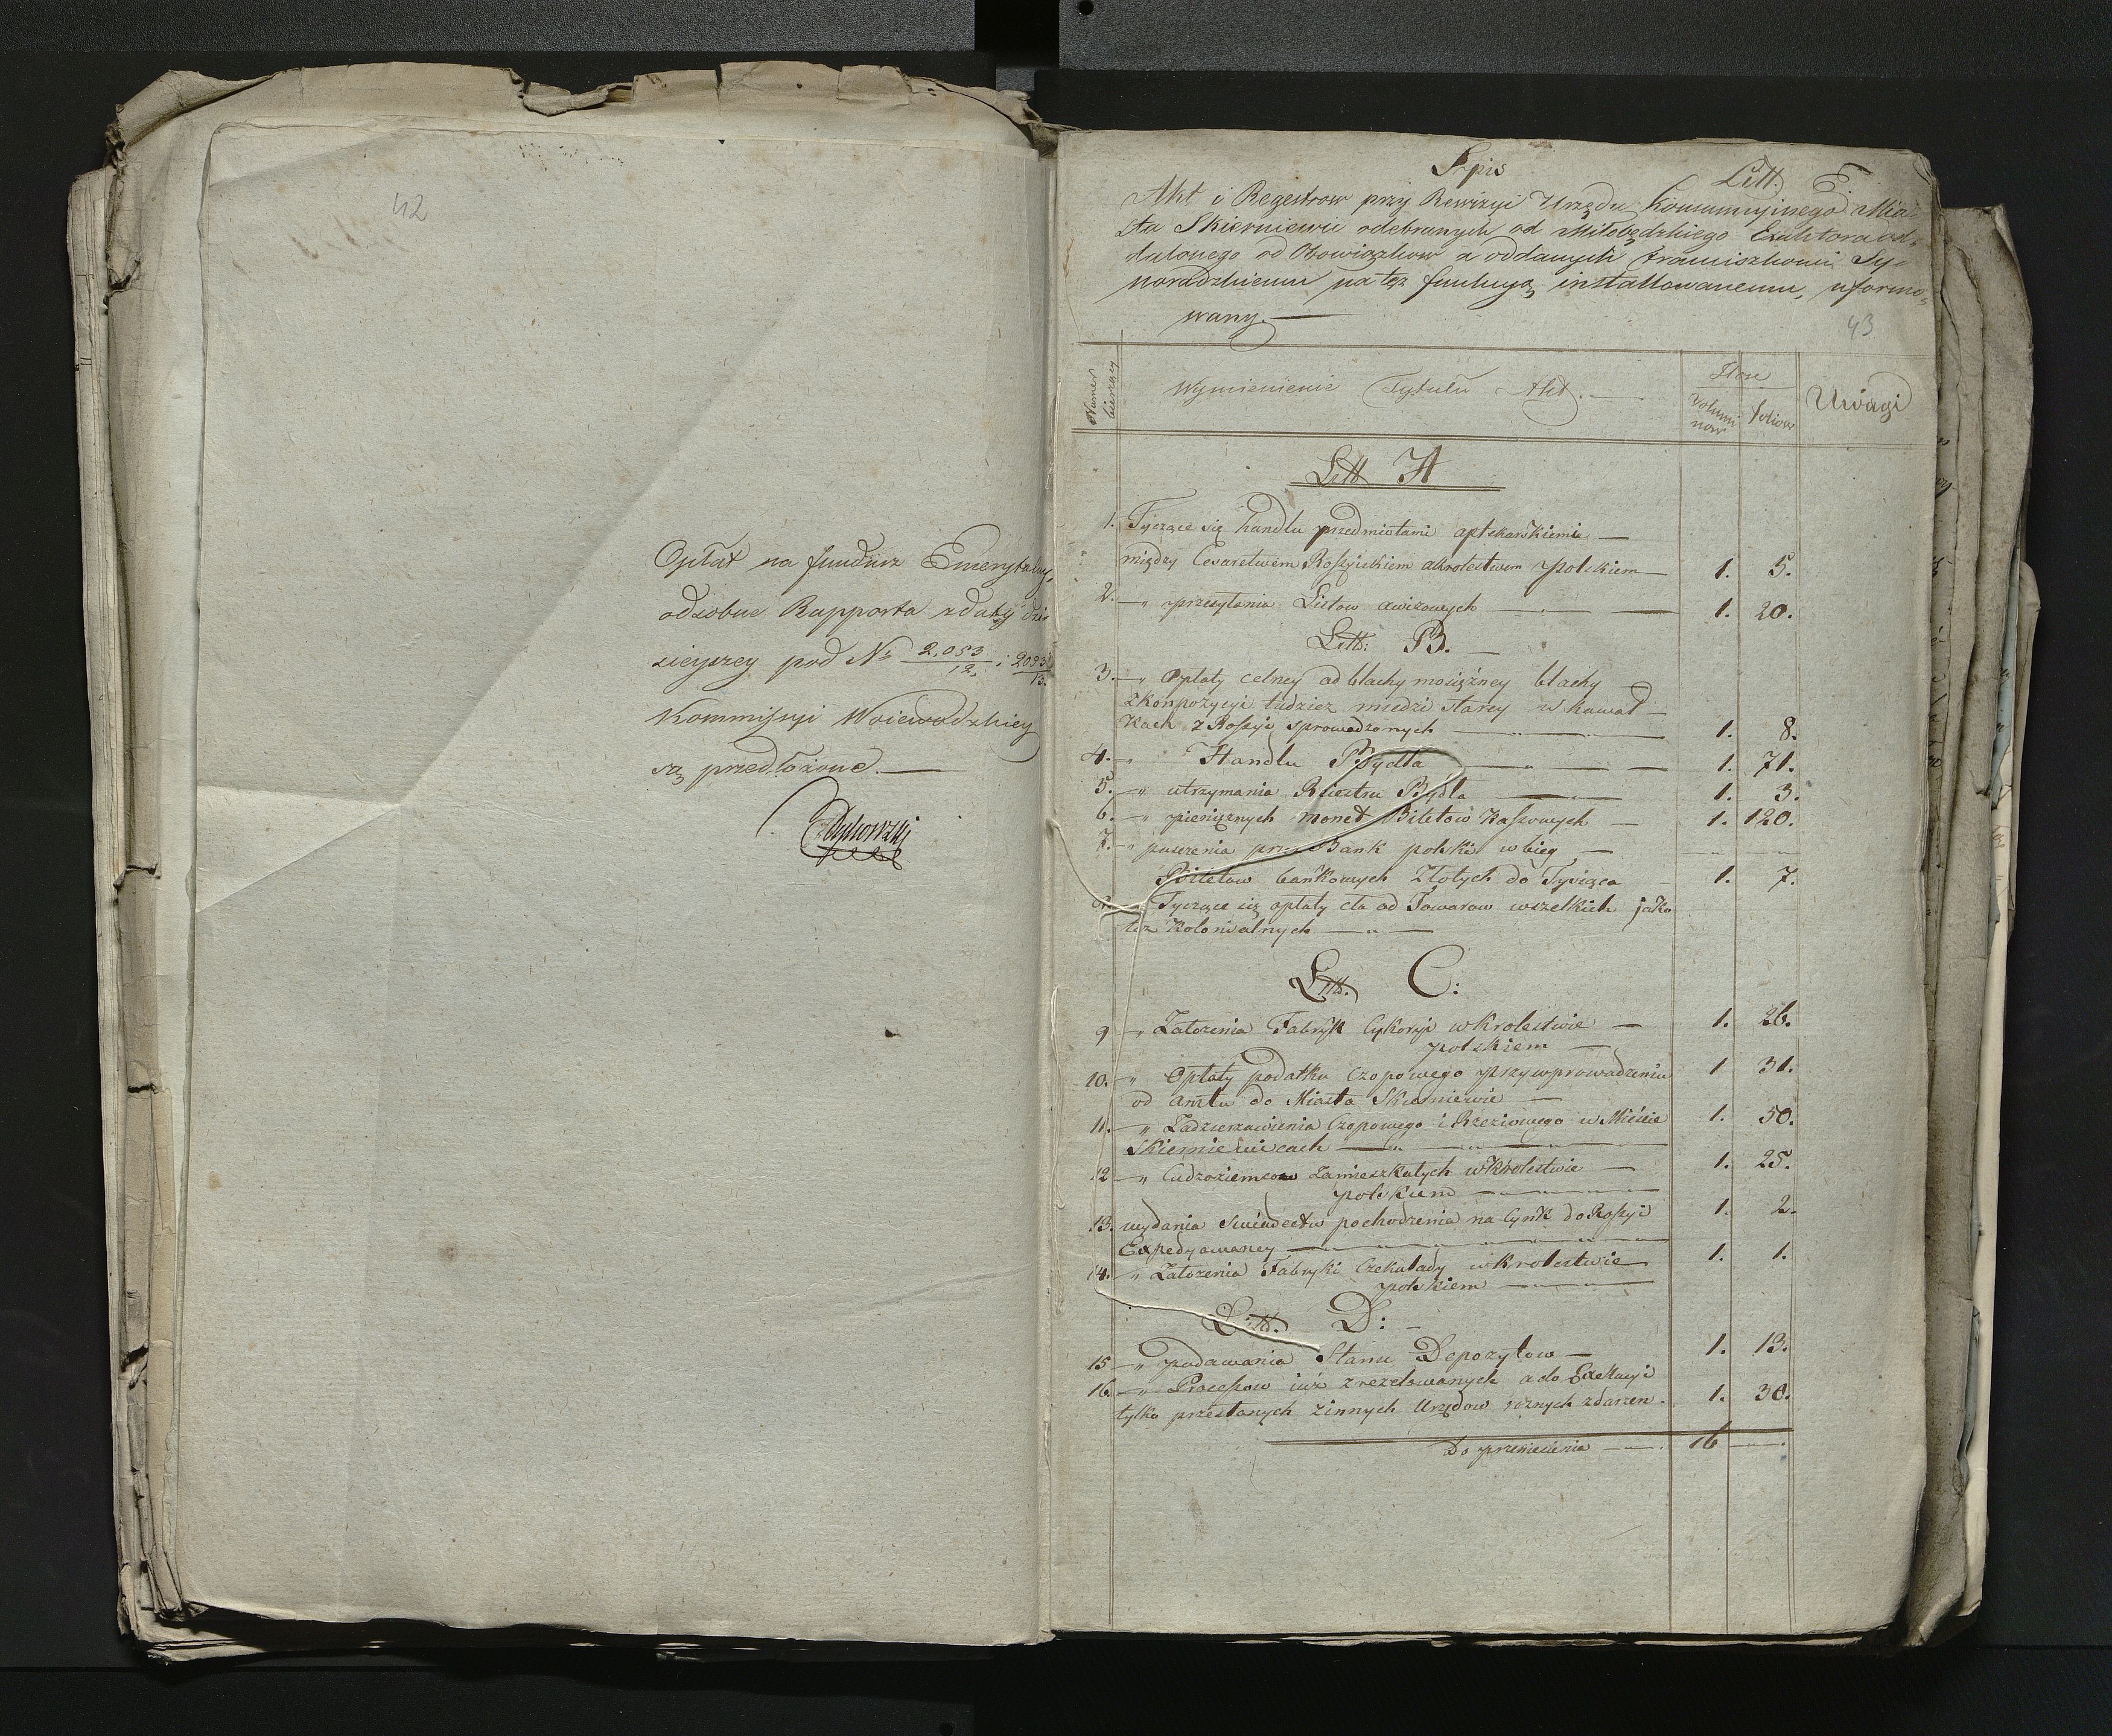 42
Opłat na fundusz Emerytalny,
odsobne Rapporta z daty dzi
sieyszey pod Nr 2,053/12, i 2053/13.
Kommissyi Woiewodzkiey
są przedłożone.—
Spis
Litt. F.
Akt i Regestrow przy Rewizyi Urzędu Konsumcyinego Mia
sta Skierniewic odebranych od Miłobędzkiego Exaktora od=
dalonego od Obowiązkow a oddanych Franciszkowi Sy=
noradzkiemu na tęż funkcyą installowanemu, uformo=
wany.—
43
Numer bieżący
Wymienienie Tytułu Akt.—
Voluminow
foliow
Uwagi
Litt A
1. Tyczące się handlu przedmiotami aptekarskiemi —
między Cesarstwem Rossyiskiem a krolestwem polskiem — 1. 5.
2. — „ przesyłania Listow awizowych — 1. 20.
Litt: B. —
3. — „ Opłaty celney od blachy mosiężney blachy —
z konpozycyi tudzież miedzi starey w kawał
kach z Rossyi sprowadzonych — 1. 8.
4. — „ Handlu Bydła — 1. 71.
5. — „ utrzymania Rejestru Bydła — 1. 3.
6. — „ pieniężnych monet Biletow Kassowych — 1. 120.
7. — „ puszczenia przez Bank polski w bieg —
Biletow bankowych Złotych do Tysiąca — 1. 7.
8. — Tyczące się opłaty cła od Towarow wszelkich jako
też Kolonialnych — „ —
Litt. C:
9 — „ Założenia Fabryk Cykoryi w krolestwie — 1. 26.
polskiem —
10. — „ Opłaty podatku Czopowego przy wprowadzeniu 1 31.
od Amtu do Miasta Skierniewic —
11. — „ Zadzierzawienia Czopowego i Rzeziowego w Mieście 1. 50.
Skierniewicach —
12 — „ Cudzoziemcow zamieszkałych w Krolestwie — 1. 25.
polskiem —
13. wydania swiadectw pochodzenia na Cynk do Rossyi 1. 2.
Expedyowaney —
14. — „ Założenia Fabryki Czekulady w krolestwie 1. 1.
polskiem —
Litt. D: —
15 — „ podawania Stanu Depozytow — 1. 13.
16. — „ Processow już zrezelowanych a do Exekucyi
tylko przesłanych z innych Urzędow roznych zdarzen. 1. 30.
Do przeniesienia — 16 —